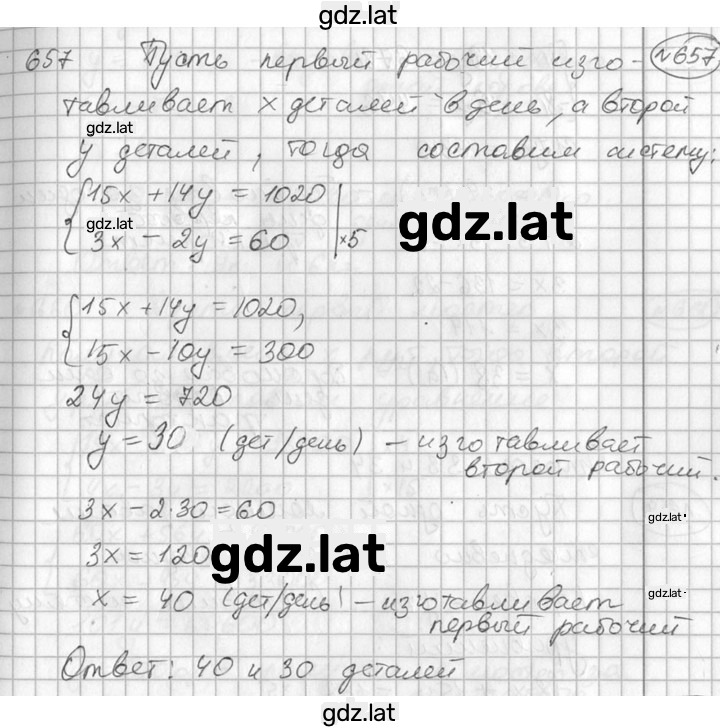 gdz.lat
657 Пусть первый рабочий изго- №657
тавливает x деталей в день, а второй
gdz.lat
y деталей, тогда составим систему:
15x + 14y = 1020
gdz.lat
gdz.lat
3x - 2y = 60 | ×5
15x + 14y = 1020,
15x - 10y = 300
24y = 720
y = 30 (дет/день) - изготавливает
второй рабочий.
3x - 2·30 = 60
gdz.lat
3x = 120
gdz.lat
x = 40 (дет/день) - изготавливает
gdz.lat
первый рабочий
Ответ: 40 и 30 деталей
gdz.lat